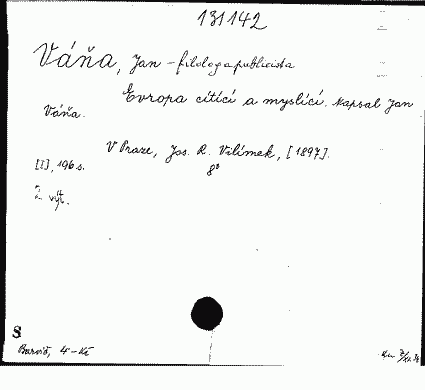 131142
Váňa, Jan - filolog a publicista
Evropa cítící a myslící. Napsal Jan
Váňa.
V Praze, Jos. R. Vilímek, [1897].
8°
[I], 196 s.
2 výt.
S
4 - Kč